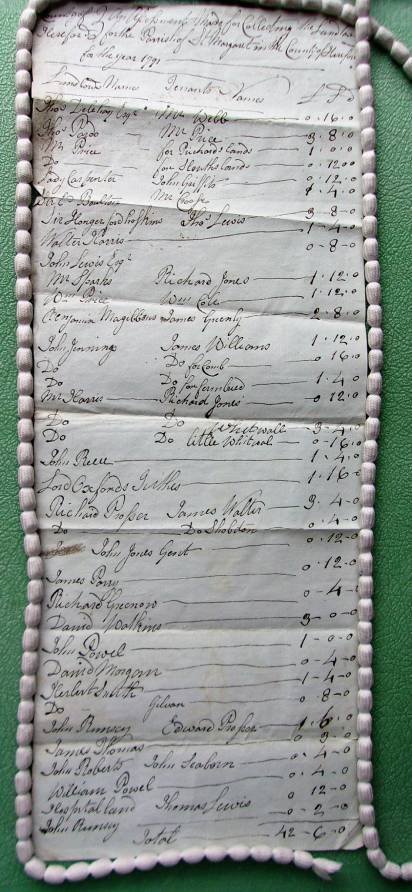 made for Collecting the Land tax
for the Parish of St Margaret in the County of Hereford
for the year 1791
Landlords Names Tenants Names £ s d
Esqr Mr Webb 0 . 16 . 0
Thos Pardo Mr Price 3 . 8 . 0
Mr Price for Richards lands 1 . 0 . 0
Do for lands 0 . 12 . 0
Lady Carpenter John Griffits 0 . 12 . 0
Mr 1 . 4 . 0
Sir Hungerford Hoskins Thos Lewis 3 - 8 - 0
Walter Harris 1 - 4 - 0
John Lewis Esqr 0 - 8 - 0
Mr Sparks Richard Jones 1 . 12 . 0
Wm Price Wm Cole 1 . 12 . 0
Benjamin James Greenly 2 . 8 . 0
John Jenning James Williams 1 . 12 . 0
Do Do for Comb 0 . 16 . 0
Do Do for 1 . 4 . 0
Mr Harris Richard Jones 0 . 12 . 0
Do Do Whitwall 3 - 4 - 0
Do Do little Whitwal 0 - 16 - 0
John Rece 1 - 4 - 0
Lord Oxfords Tithes 1 . 16 - 0
Richard Prosser James Walter 3 . 4 - 0
Do Do Shobdon . 4 - 0
John Jones Gent 0 - 12 - 0
James Parry 0 . 12 - 0
Richard Greenow 0 - 4 - 0
David Watkins 3 - 0 - 0
John Powel 1 - 0 - 0
David Morgan 0 - 4 - 0
Herbert Smith 1 - 4 - 0
Do Gilvan 0 . 8 - 0
John Rumsey Edward Prosser
James Thomas
John Roberts John Seaborn 0 . 4 - 0
William Powel 0 . 4 . 0
Hospital land Thomas Lewis 0 12 - 0
John Rumsey 0 - 2 - 0
Total 42 - 6 - 0